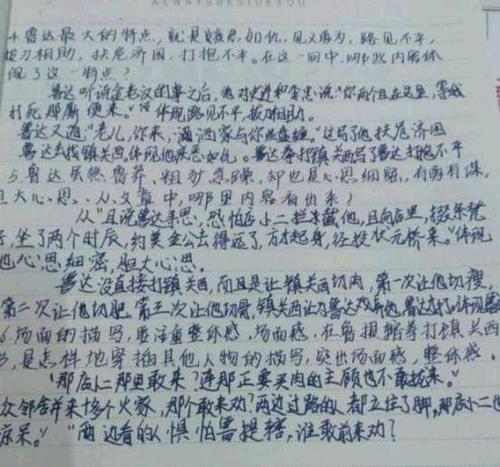 ALWAYSBESIDEYOU
4 鲁达最大的特点,就是嫉恶如仇,见义勇为,路见不平,
拔刀相助,扶危济困,打抱不平。在这一回中,哪些内容体
现了这一特点?
鲁达听说金老汉的事之后,他对史进和李忠说:"你两个且在这里,等我
打死那厮便来。"体现路见不平,拔刀相助。
鲁达又道:"老儿,你来,洒家与你些盘缠,"这写了他扶危济困
鲁达去找镇关西,体现他疾恶如仇。鲁达拳打镇关西写了鲁达打抱不平
5 鲁达虽然鲁莽、粗犷急躁,却也是心思细腻,有勇有谋,
胆大心思,从文章中,哪里内容看出来?
从"且说鲁达寻思,恐怕店小二赶来拦截他,且向店里,掇条凳
子,坐了两个时辰,约莫金公去得远了,方才起身,径投状元桥来。"体现
他心思细密,胆大心思。
鲁达没直接打镇关西,而且是让镇关西切肉,第一次让他切瘦,
第二次让他切肥,第三次让他切骨,镇关西认为鲁达戏弄他,鲁达
6.场面的描写,要注重整体感、场面感,在鲁提辖拳打镇关西
中,是怎样地穿插其他人物的描写,突出场面感,整体感,
"那店小二那里敢来?连那正要买肉的主顾也不敢拢来。"
众邻舍并来十多个火家,那个敢来劝?两边过路的人都立住了脚,那店小二也
惊呆。""两边看的人惧怕鲁提辖,谁敢前来劝?